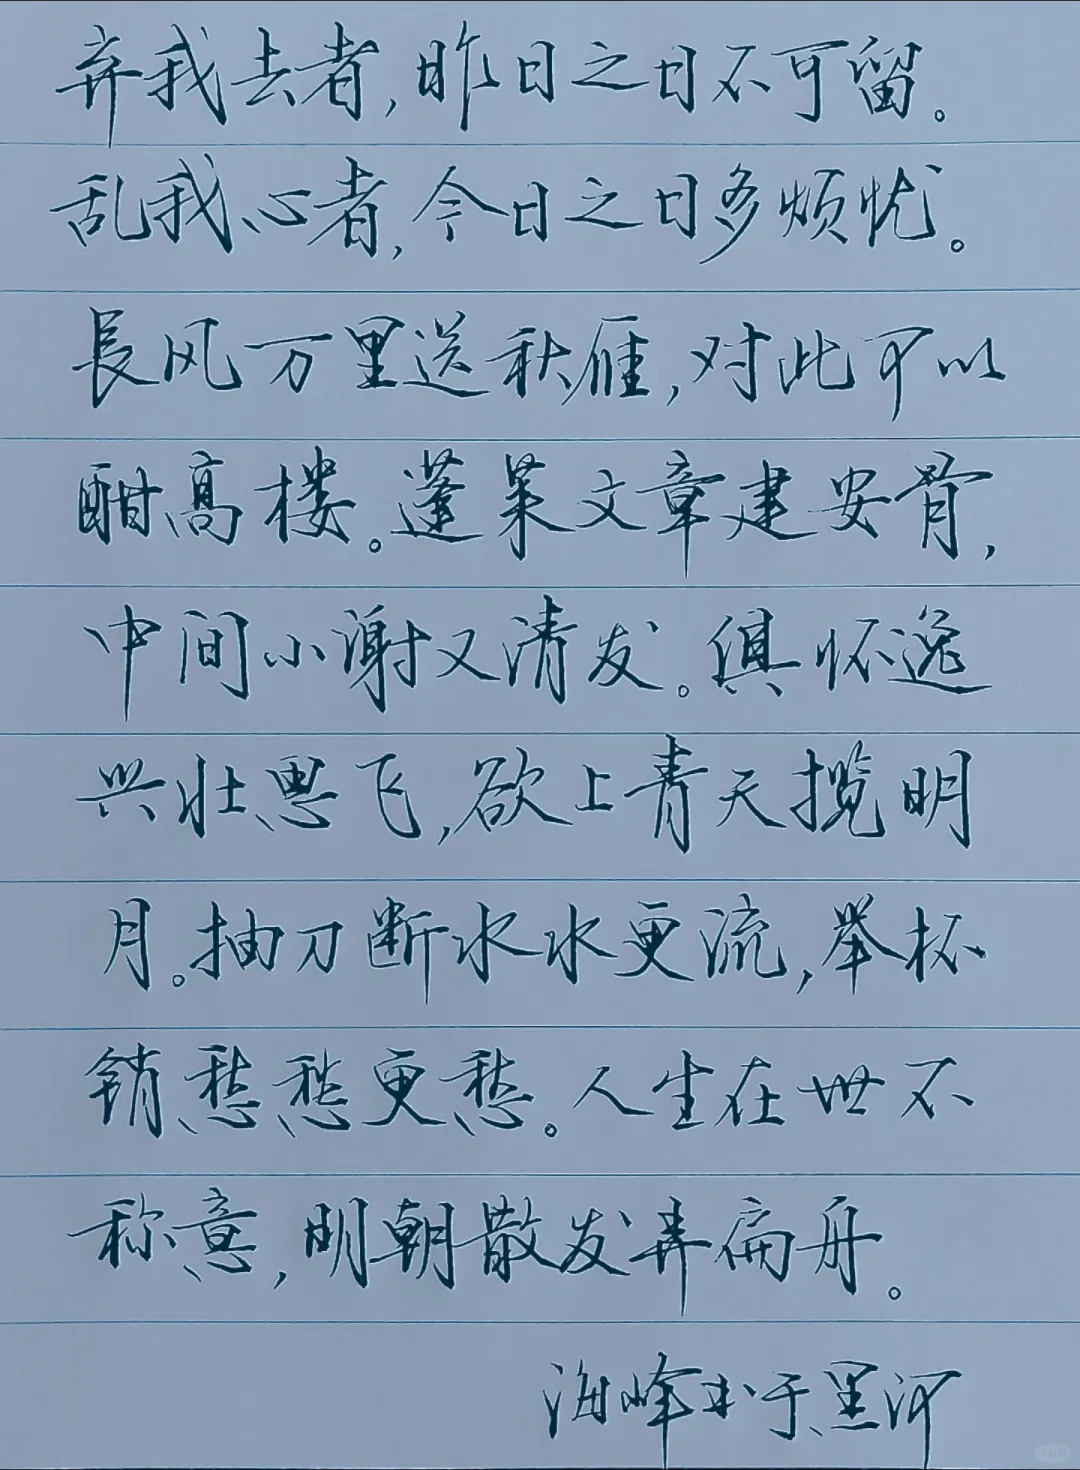 弃我去者，昨日之日不可留。
乱我心者，今日之日多烦忧。
長风万里送秋雁，对此可以
酣高楼。蓬莱文章建安骨，
中间小谢又清发。俱怀逸
兴壮思飞，欲上青天揽明
月。抽刀断水水更流，举杯
销愁愁更愁。人生在世不
称意，明朝散发弄扁舟。
海峰书于黑河